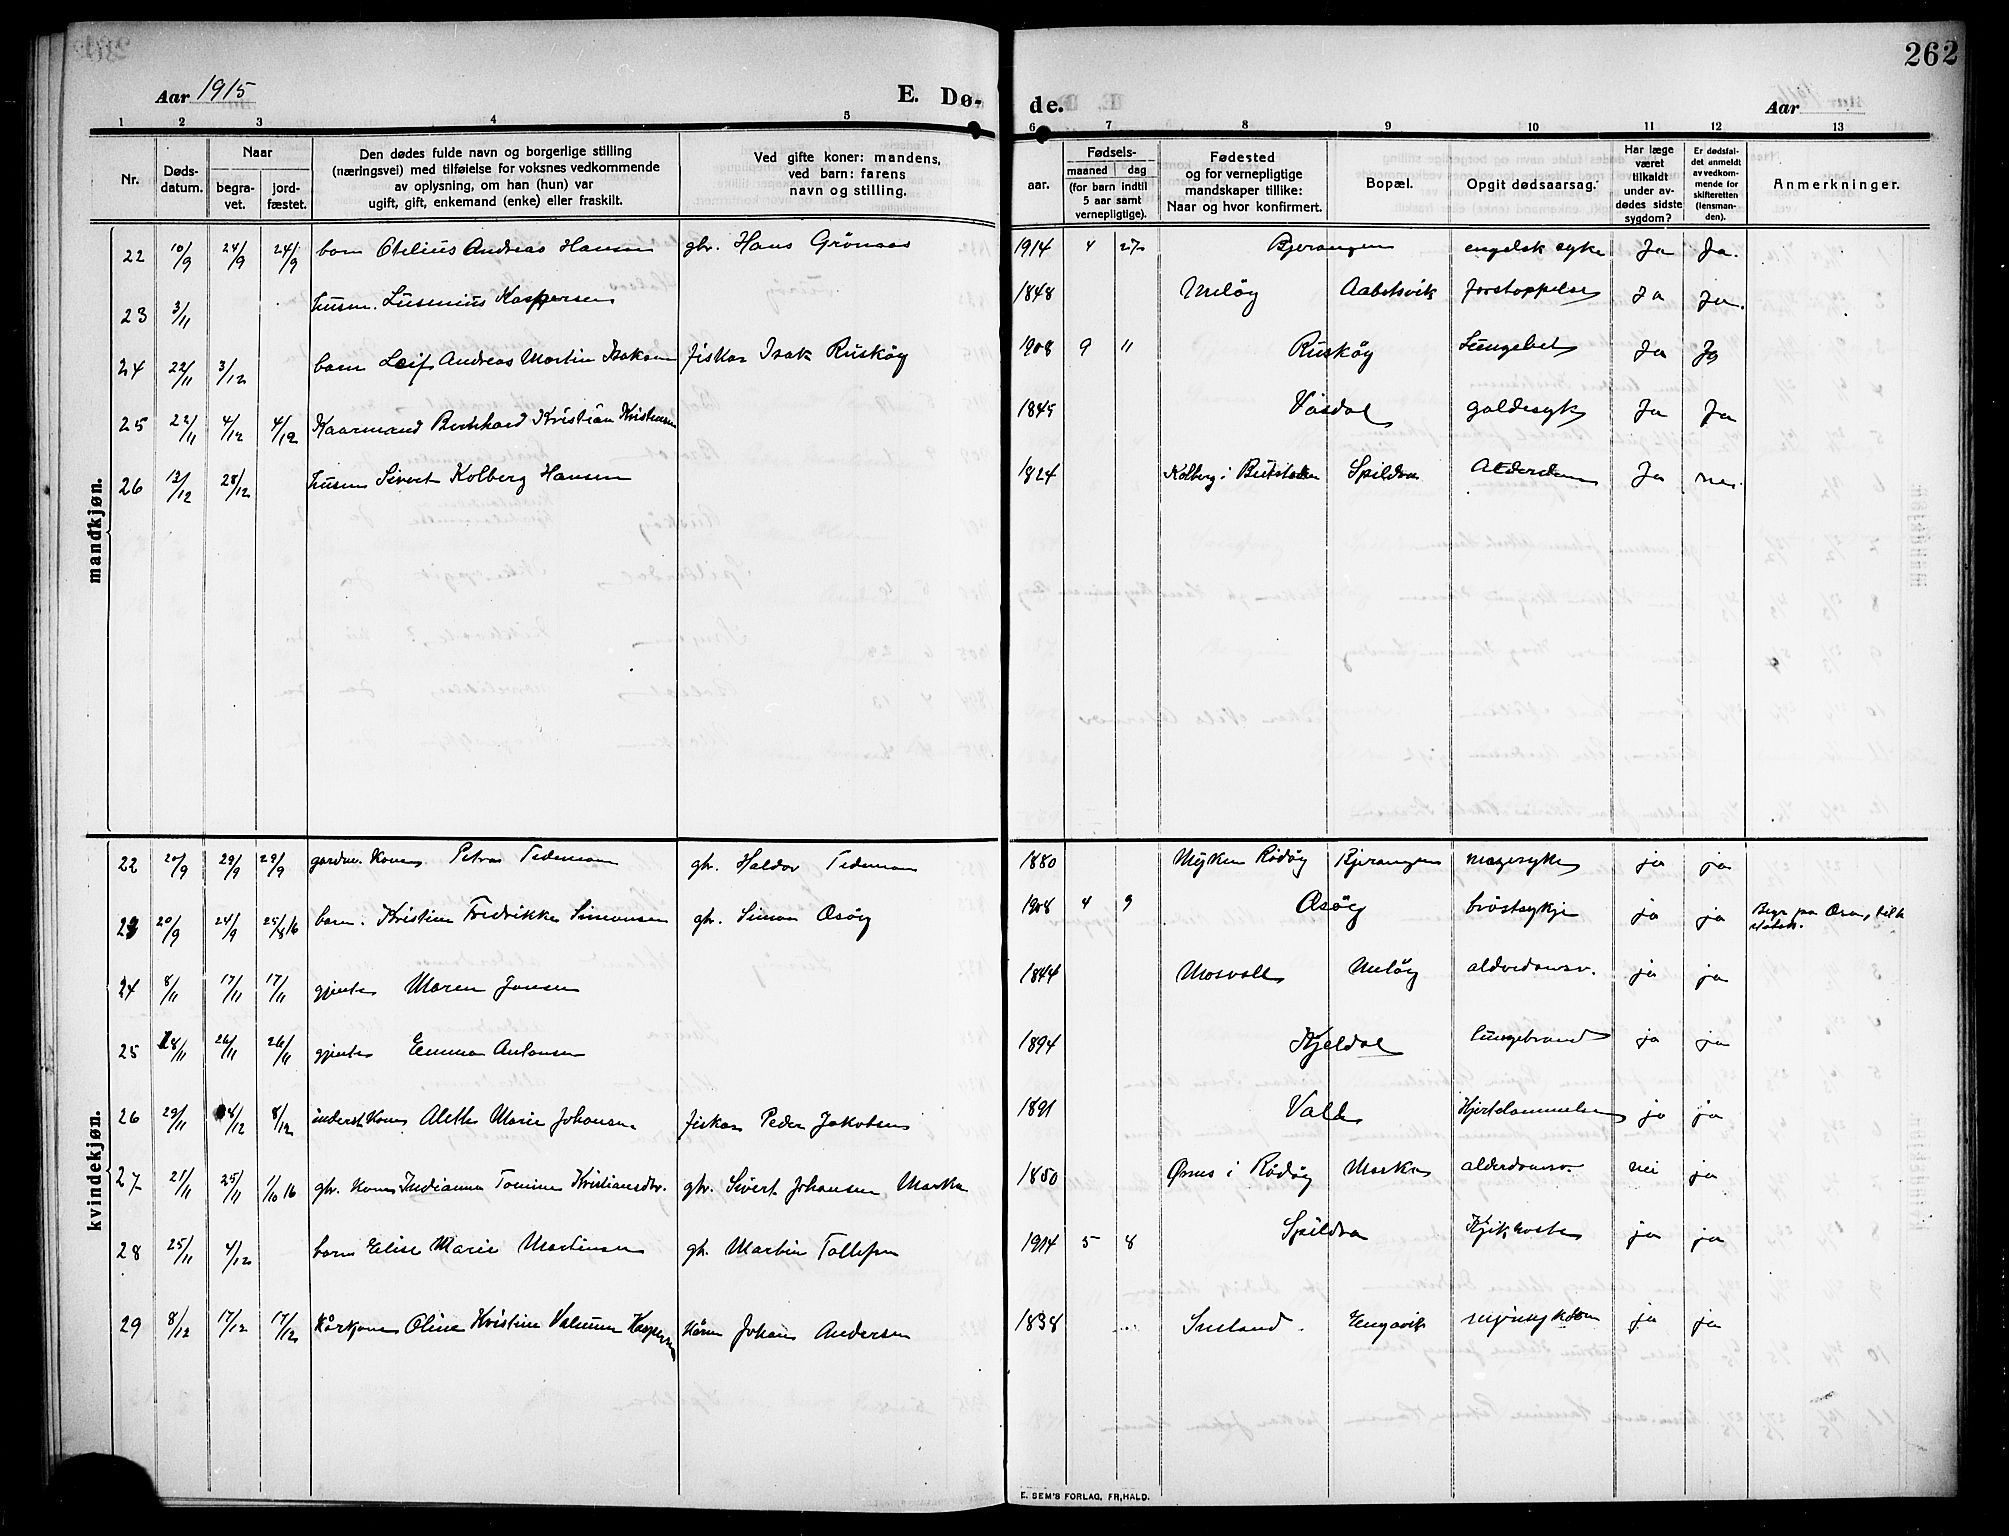 262
Aar 1915
E. Dø-
de.
Aar
1 2 3 4 5 6 7 8 9 10 11 12 13
Nr.
Døds-
datum.
Naar
begra-
vet.
jord-
fæstet.
Den dødes fulde navn og borgerlige stilling
(næringsvei) med tilføielse for voksnes vedkommende
av oplysning, om han (hun) var
ugift, gift, enkemand (enke) eller fraskilt.
Ved gifte koner: mandens,
ved barn: farens
navn og stilling.
aar.
Fødsels-
maaned dag
(for barn indtil
5 aar samt
vernepligtige).
Fødested
og for vernepligtige
mandskaper tillike:
Naar og hvor konfirmert.
Bopæl.
Opgit dødsaarsag.
Har læge
været
tilkaldt
under av-
dødes sidste
sygdom?
Er dødsfal-
det anmeldt
av vedkom-
mende for
skifteretten
(lensman-
den).
Anmerkninger.
mandkjøn.
22 10/9 24/9 24/9 barn Otelius Andreas Hansen gbr. Hans Grönaas 1914 4 27 Bjerangen engelsk syke Ja Ja.
23 3/11 husm. Kaspersen 1848 Melöy Aabotsvik forstoppelse Ja Ja.
24 22/11 3/12 barn Leif Andreas Martin Isaksen fisker Isak Rusköy 1908 9 11 Rusköy Lungebet Ja Ja
25 22/11 4/12 4/12 Kaarmand Bernhard Kristian Kristensen 1845 Vasdal galdesyk Ja Ja
26 13/12 28/12 husm Sivert Kolberg Hansen 1824 Kolberg i Spildra Alderdom Ja nei
kvindekjøn.
22 20/9 29/9 29/9 gardm. Kone Petra Tideman gbr. Haldor Tideman 1880 Myken Rödöy Bjerangen magesyke ja ja
23 20/9 24/9 25/8 16 barn. Kristine Fredrikke Simonsen gbr. Simon Osöy 1908 4 9 Osöy bröstsykje ja ja Begr. paa
24 8/11 17/11 17/11 gjente Maren Jonsen 1844 Mosvoll Melöy alderdomsv. ja ja
25 18/11 26/11 26/11 gjente Emma Antonsen 1894 Kjeldal lungebrand ja ja
26 29/11 4/12 8/12 inderst Kone Alette Marie Johansen fisker Peder Jakobsen 1891 Valle Hjertelammelse ja ja
27 21/11 25/11 1/10 16 gbr. Kone Indianna Tomine Kristiansdtr. gbr. Sivert Johansen Marka 1850 Ørnes i Rödöy Marka alderdomsv. nei ja
28 25/11 4/12 barn Elise Marie Martinsen gbr. Martin Tollefsen 1914 5 8 Spildra Kjikhoste ja ja
29 8/12 17/12 17/12 Kårkone Oline Kristine Kaspersen Kårm Johan Andersen 1838 ... Selsand. Engavik ja ja
E. SEM'S FORLAG, FR,HALD.